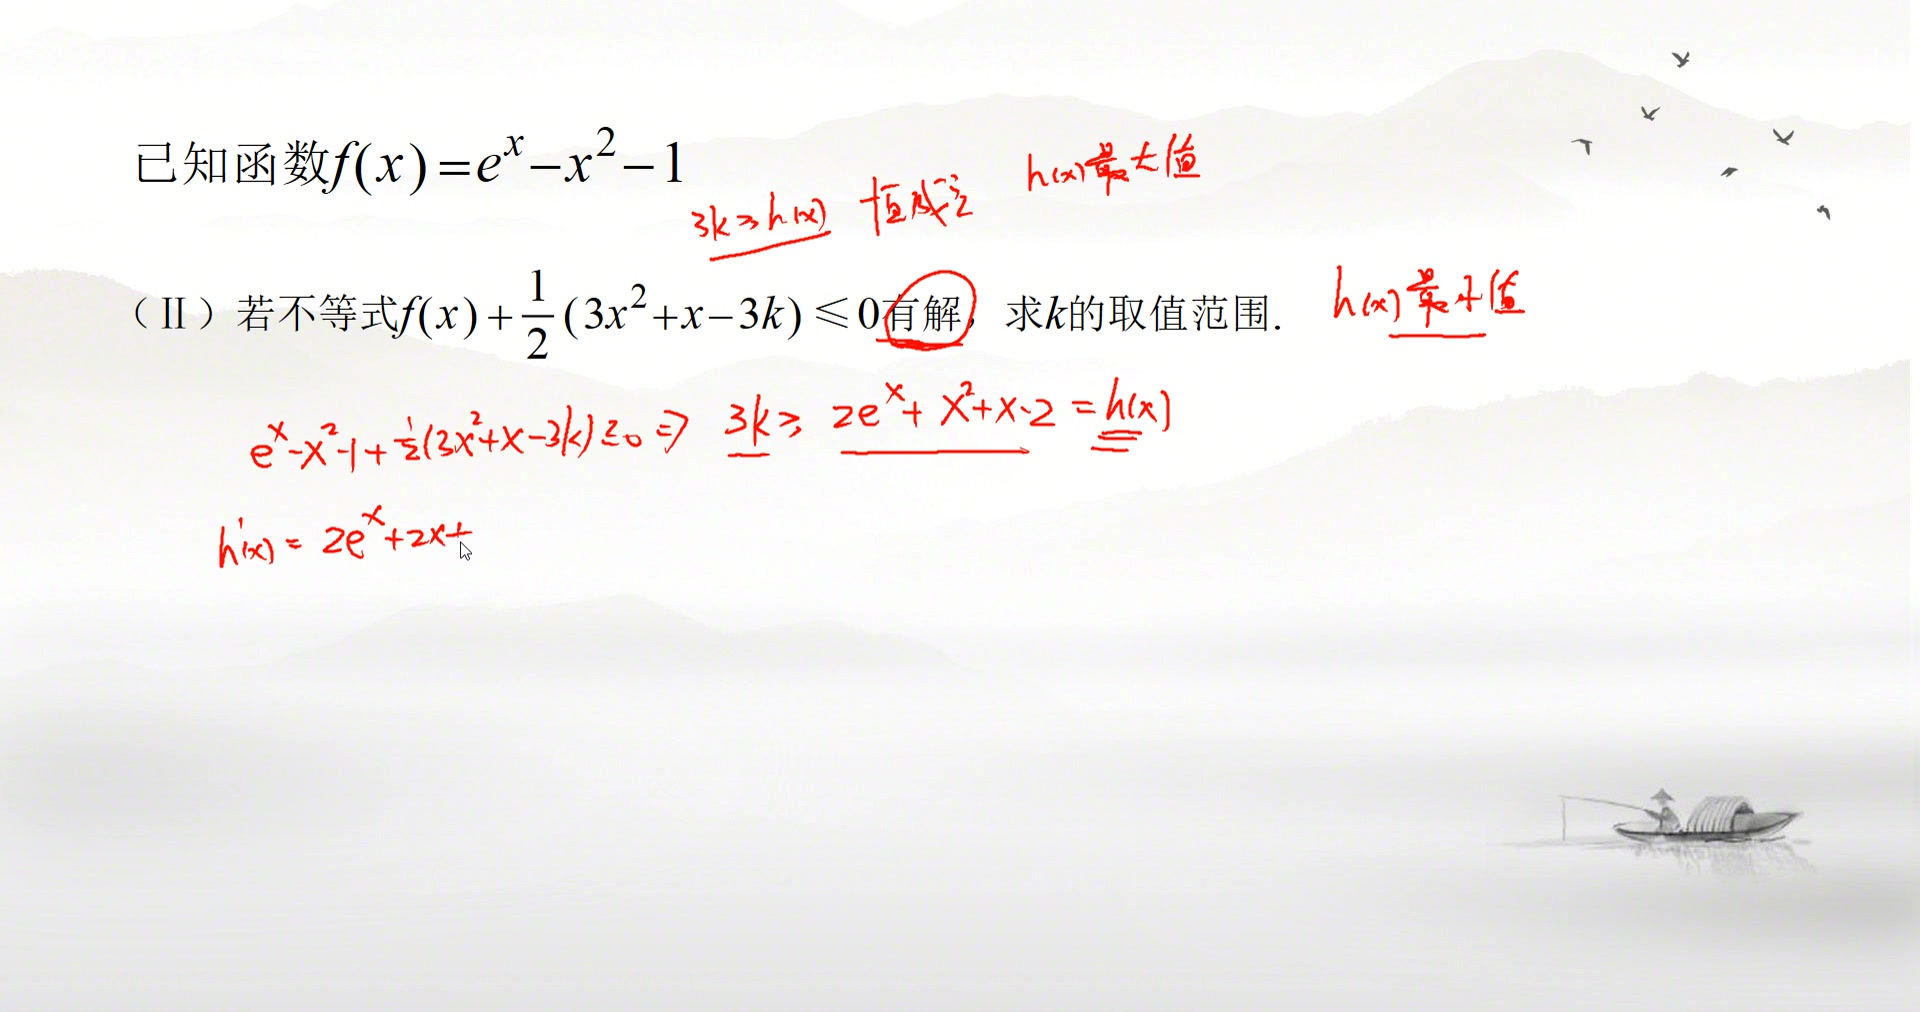 已知函数f(x)=eˣ-x²-1
h(x)最大值
3k≥h(x) 恒成立
(Ⅱ)若不等式f(x)+1/2(3x²+x-3k)≤0有解,求k的取值范围.
h(x)最小值
eˣ-x²-1+1/2(3x²+x-3k)≤0⇒3k≥2eˣ+x²+x-2=h(x)
h'(x)=2eˣ+2x+